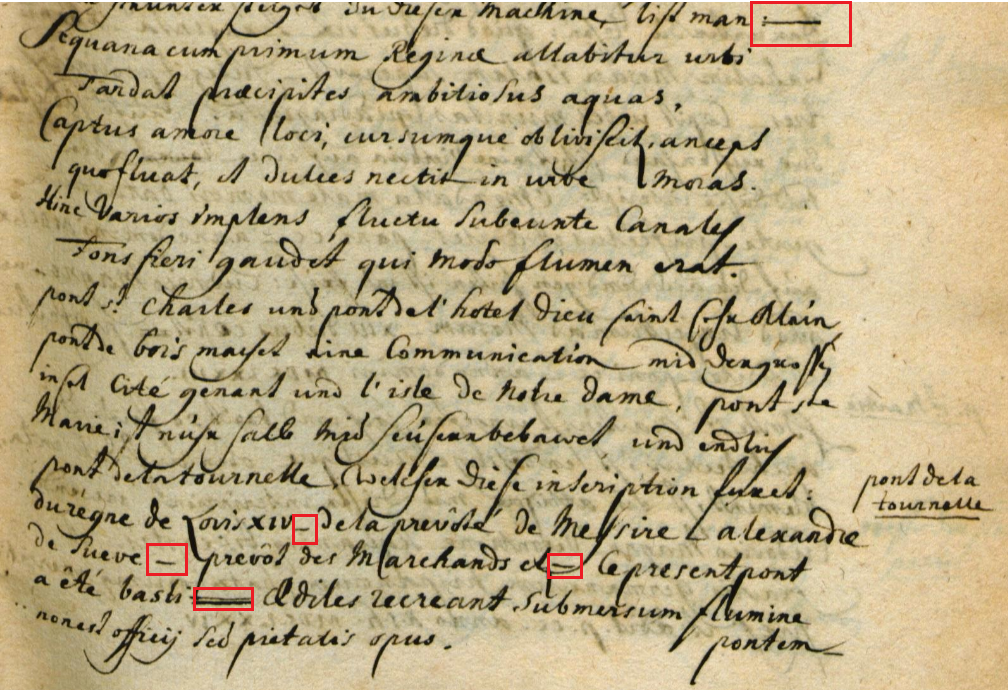 Zu dieser Machine, list man: —
Sequana cum primum Reginæ allabitur urbi
Tardat præcipites ambitiosus aquas,
Captus amore loci, cursumque obliviscit, anceps
quo fluat, et dulces nectit in urbe moras.
Hinc Varios implens fluctu subeunte Canales
Fons fieri gaudet qui modo flumen erat.
pont st. Charles und pont de l'hotel dieu seint sehr klein
pont de bois machet eine Communication mid der grossen
insel Cité genant und l'isle de Notre dame, pont ste
Marie; ist nuhr halb mid heusern bebawet und endlich
pont de la tournelle, welcher diese inscription furet:
du régne de Lovis XIV — de la prevôté de Messire alexandre
de Sueve — prevôt des Marchands et — Ce present pont
a êté basti — Ædiles recreant submersum flumine
pontem
non est officij sed pietatis opus.
pont de la
tournelle